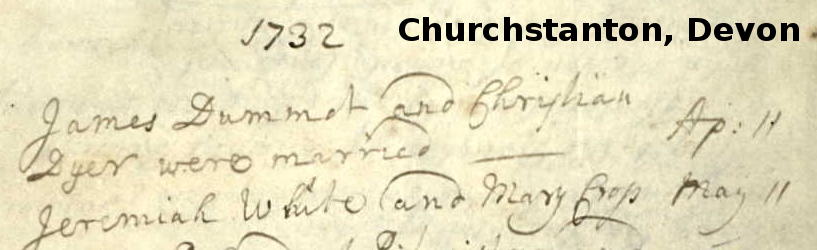 1732
Churchstanton, Devon
James Dummot and Christian
Dyer were married Ap: 11
Jeremiah White and Mary Cross May 11